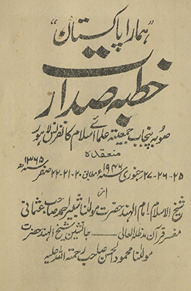 "ہمارا پاکستان"
خطبہ صدارت
صوبہ پنجاب جمعیۃ علمائے اسلام کانفرنس لاہور
منعقدہ
۲۵-۲۶-۲۷ جنوری ۱۹۴۶ء مطابق ۲۰-۲۱-۲۲ صفر ۱۳۶۵ھ
شیخ الاسلام امام الہند حضرت مولانا شبیر احمد صاحب عثمانی
مفسر قرآن مدظلہ العالی جانشین شیخ الہند حضرت
مولانا محمود الحسن صاحب رحمۃ اللہ علیہ